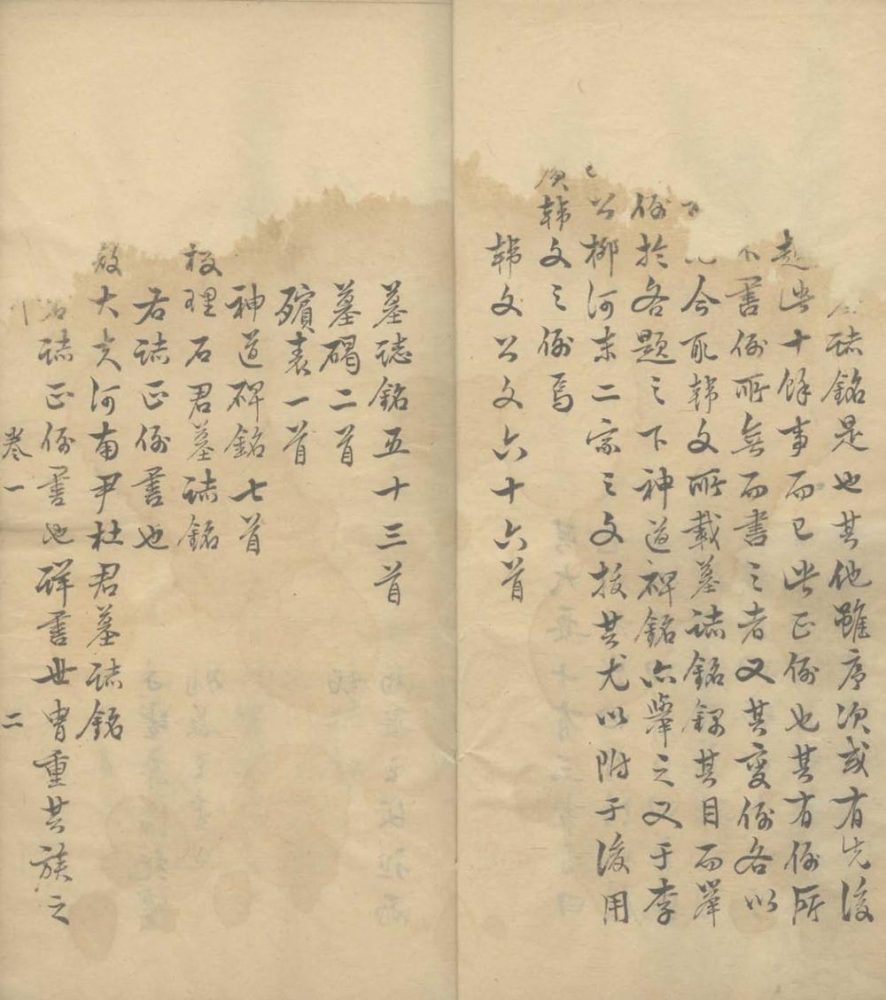 誌銘是也其他雖序次或有先後
越此十餘事而已此正例也其有例所
不書例所無而書之者又其變例各以
今取韓文所載墓誌銘録其目而舉
例於各題之下神道碑銘亦舉之又于李
公柳河東二家之文拔其尤以附于後用
廣韓文之例焉
韓文公文六十六首
墓誌銘五十三首
墓碣二首
殯表一首
神道碑銘七首
校理石君墓誌銘
右誌正例書也
故大夫河南尹杜君墓誌銘
右誌正例書也詳書世胄重其族之
卷一 二